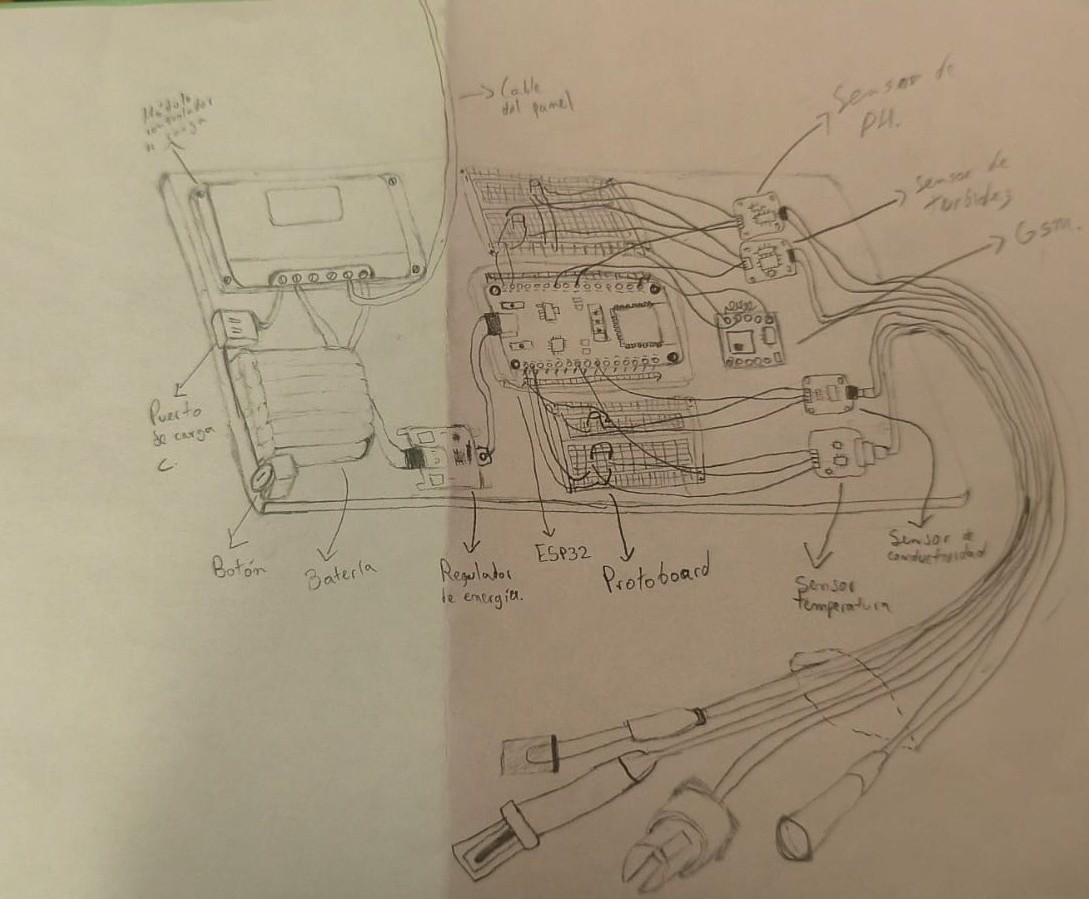 Módulo
controlador
de carga
Cable
del panel
Sensor de
PH.
Sensor de
turbidez
Gsm.
Puerto
de carga
C.
Botón
Batería
Regulador
de energía.
ESP32
Protoboard
Sensor
temperatura
Sensor de
conductividad